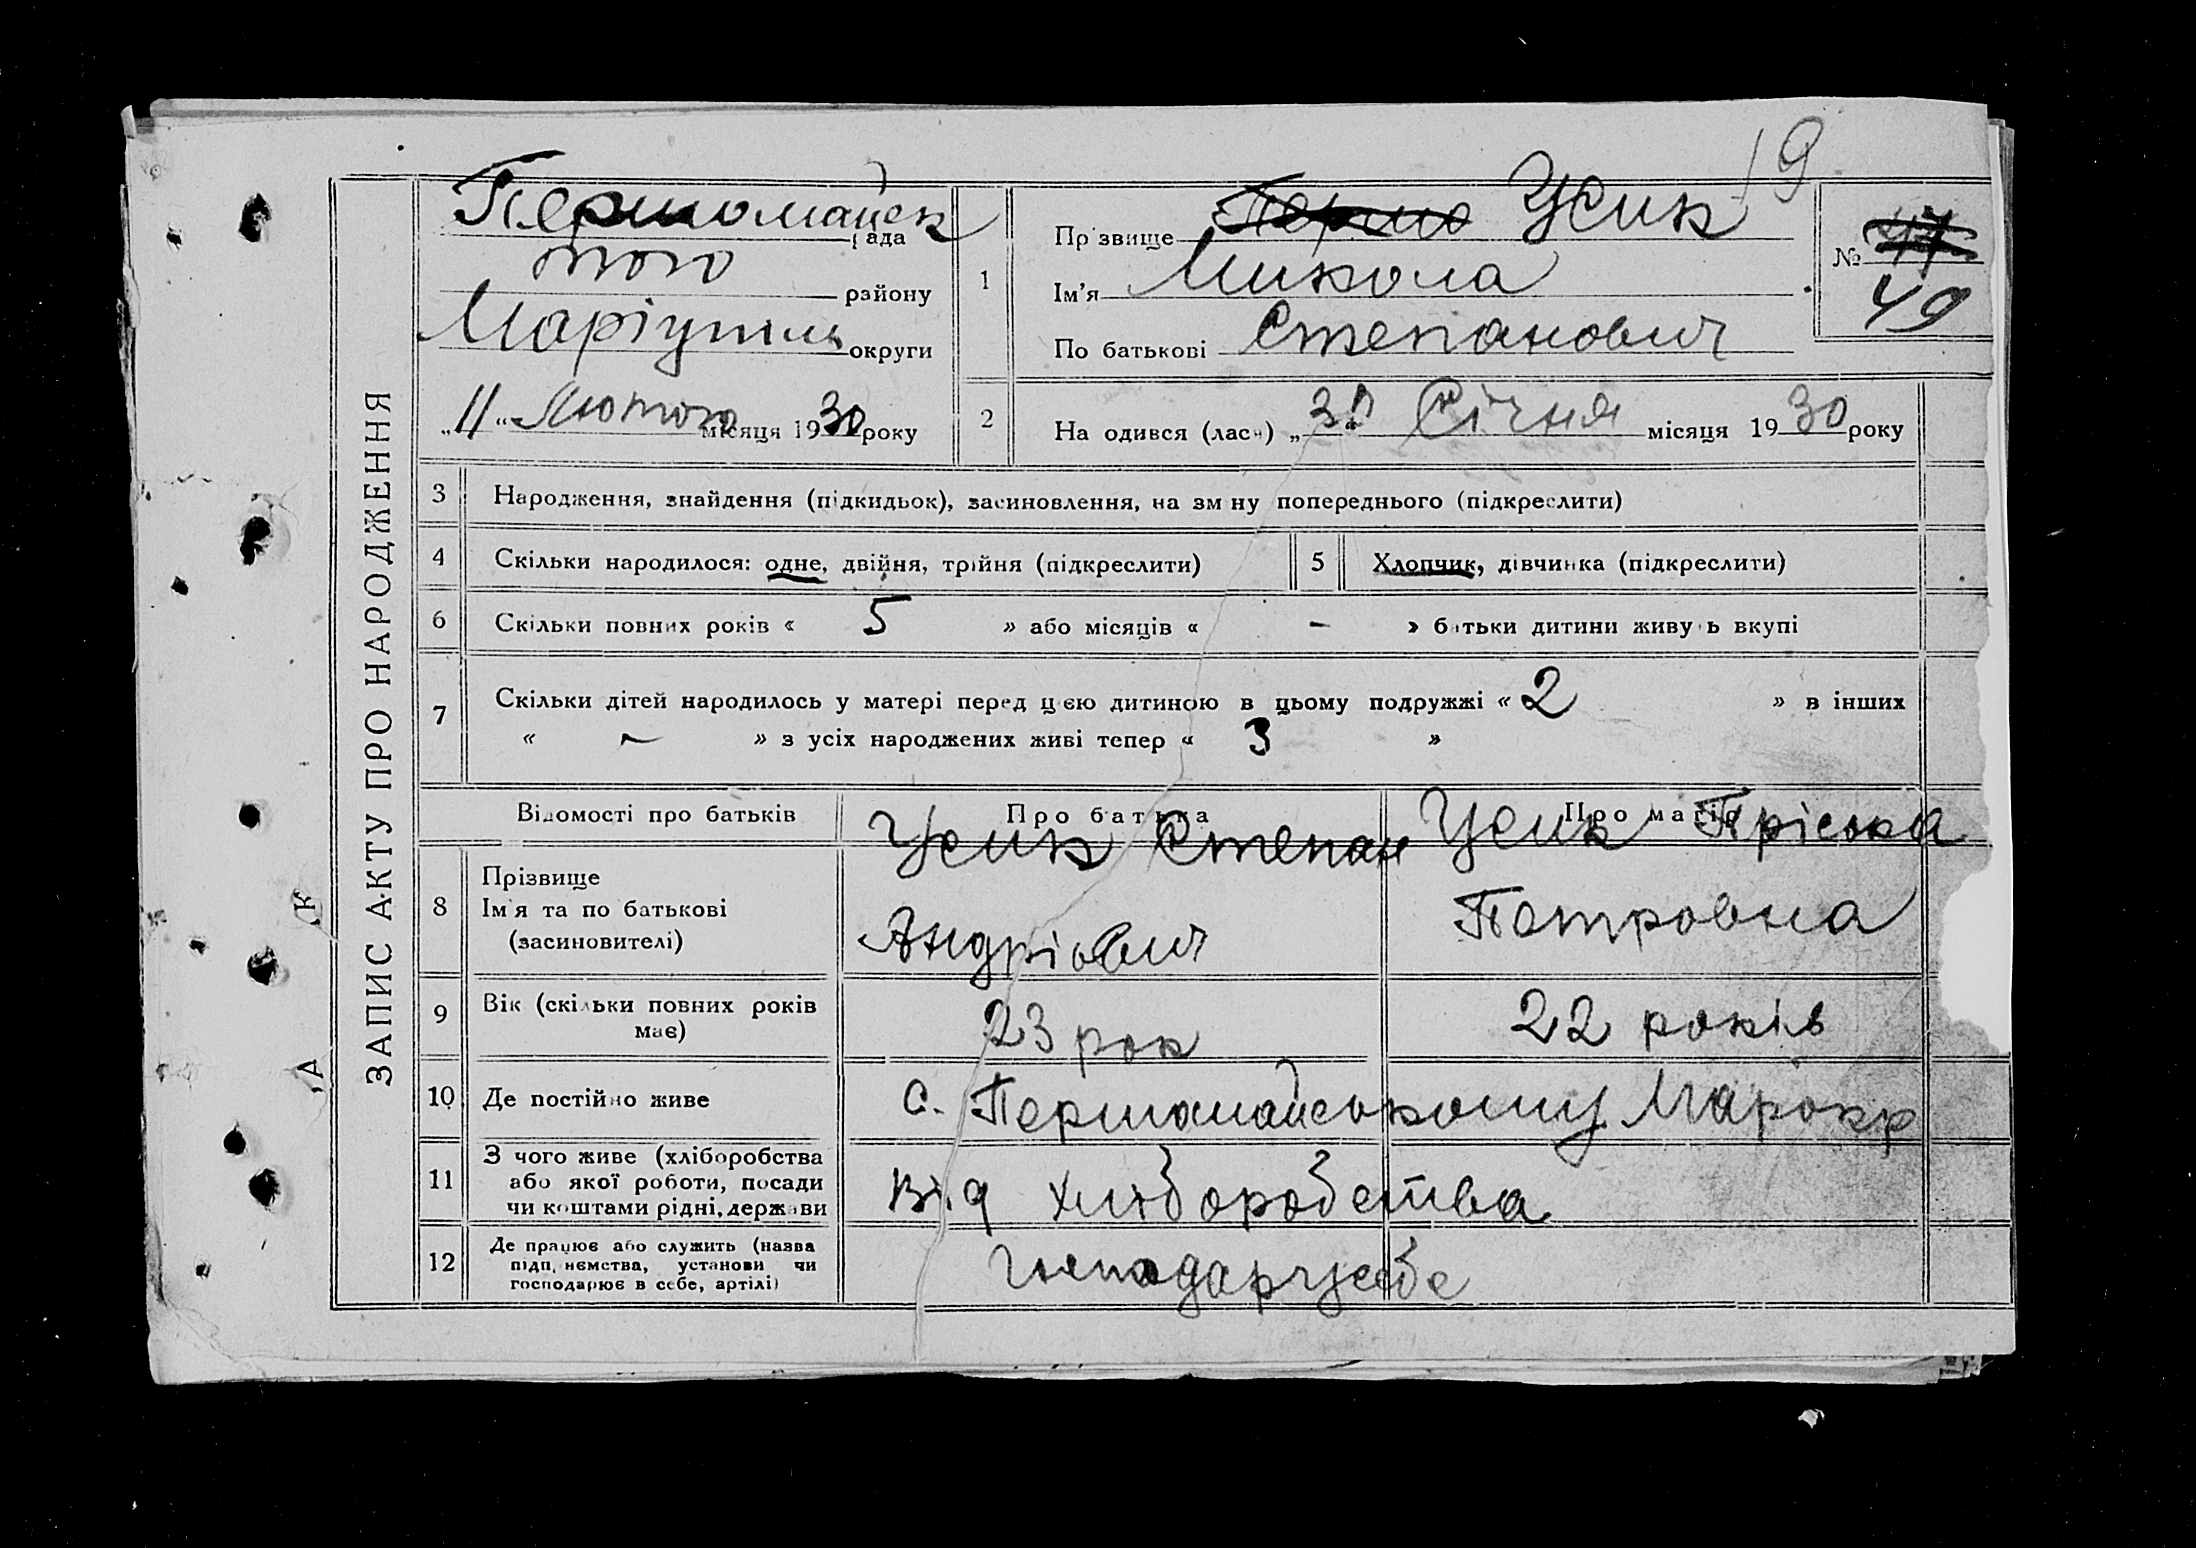 19
Першомайськ
рада
того
району
Маріупіль
округи
„11“ Лютого місяця 1930 року
1
Прізвище Усик
Ім'я Микола
По батькові Степанович
№ 47
49
2
На одився (лась) „30“ Січня місяця 1930 року
ЗАПИС АКТУ ПРО НАРОДЖЕННЯ
3 Народження, знайдення (підкидьок), засиновлення, на зміну попереднього (підкреслити)
4 Скільки народилося: одне, двійня, трійня (підкреслити)
5 Хлопчик, дівчинка (підкреслити)
6 Скільки повних років « 5 » або місяців « – » батьки дитини живуть вкупі
7 Скільки дітей народилось у матері перед цією дитиною в цьому подружжі « 2 » в інших
« – » з усіх народжених живі тепер « 3 »
Відомості про батьків
Про батька
Про матір
8 Прізвище
Ім'я та по батькові
(засиновителі)
Усик Степан
Андріович
Усик Пріська
Петровна
9 Вік (скільки повних років
має)
23 рок
22 років
10 Де постійно живе
с. Першамайському Марокр
11 З чого живе (хліборобства
або якої роботи, посади
чи коштами рідні, держави
Від хліборобства
12 Де працює або служить (назва
підп, нємства, установи чи
господарює в себе, артілі)
Господарусебе